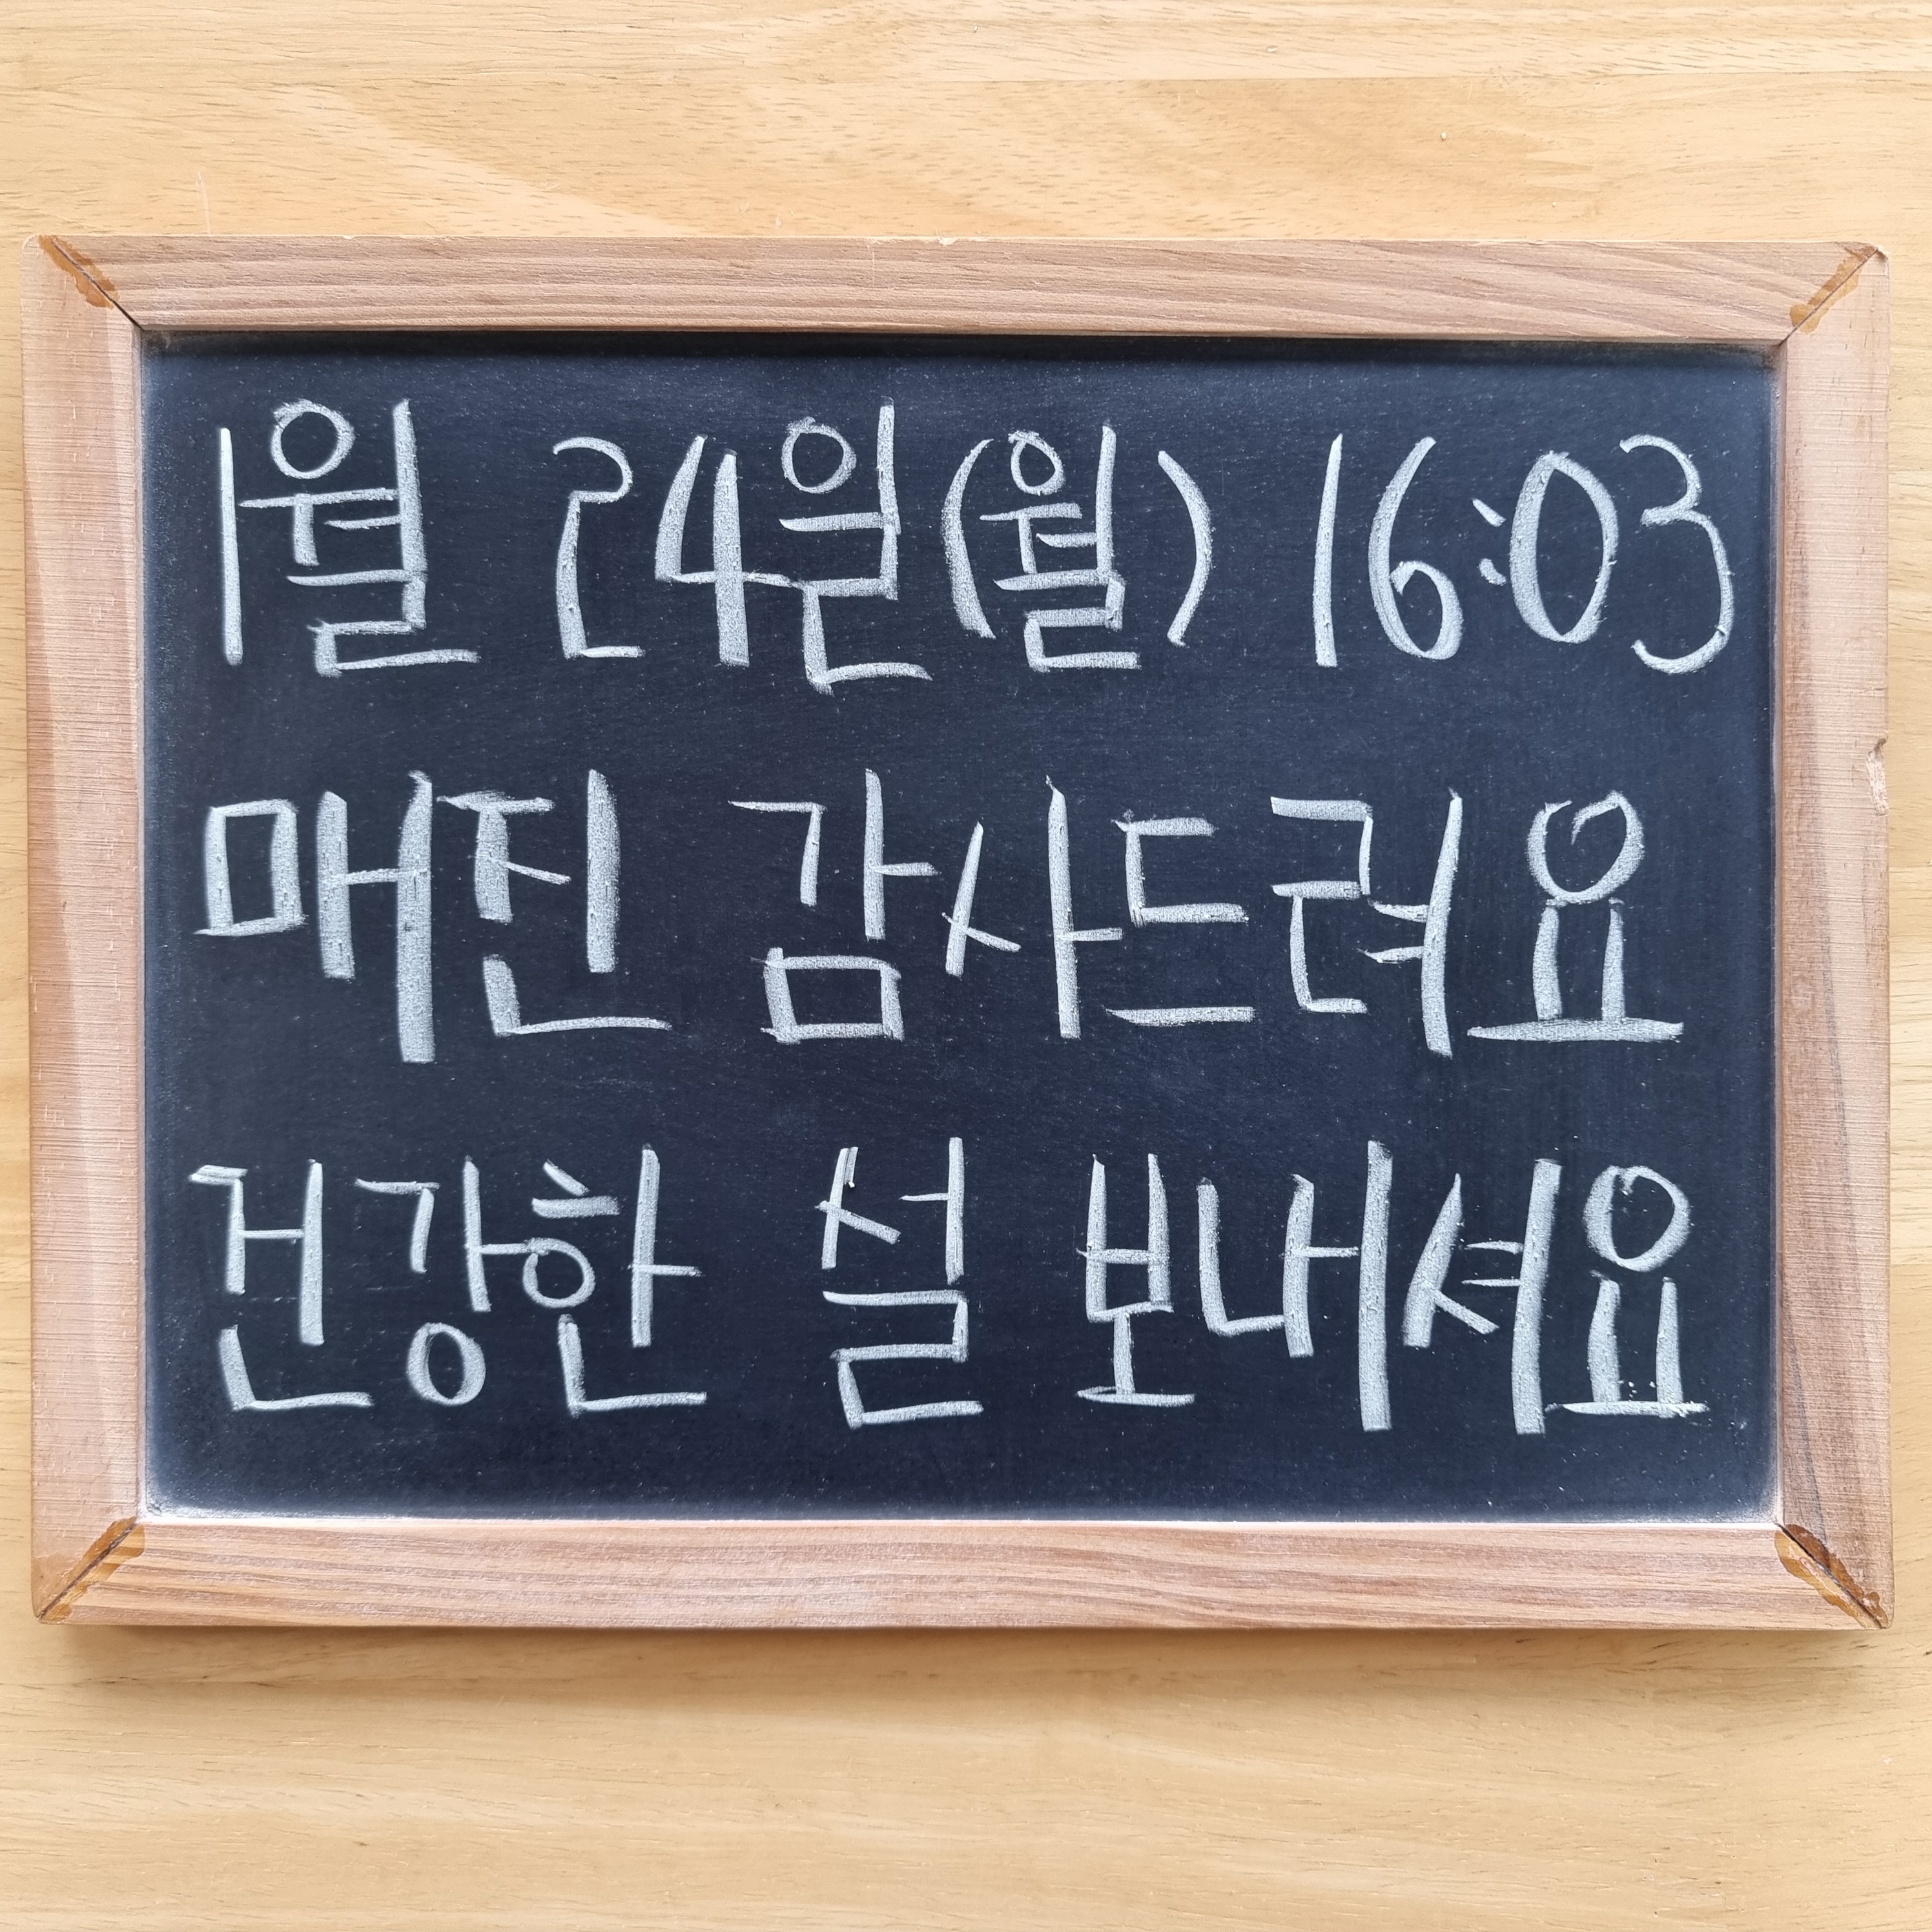 1월 24일(월) 16:03
매진 감사드려요
건강한 설 보내셔요